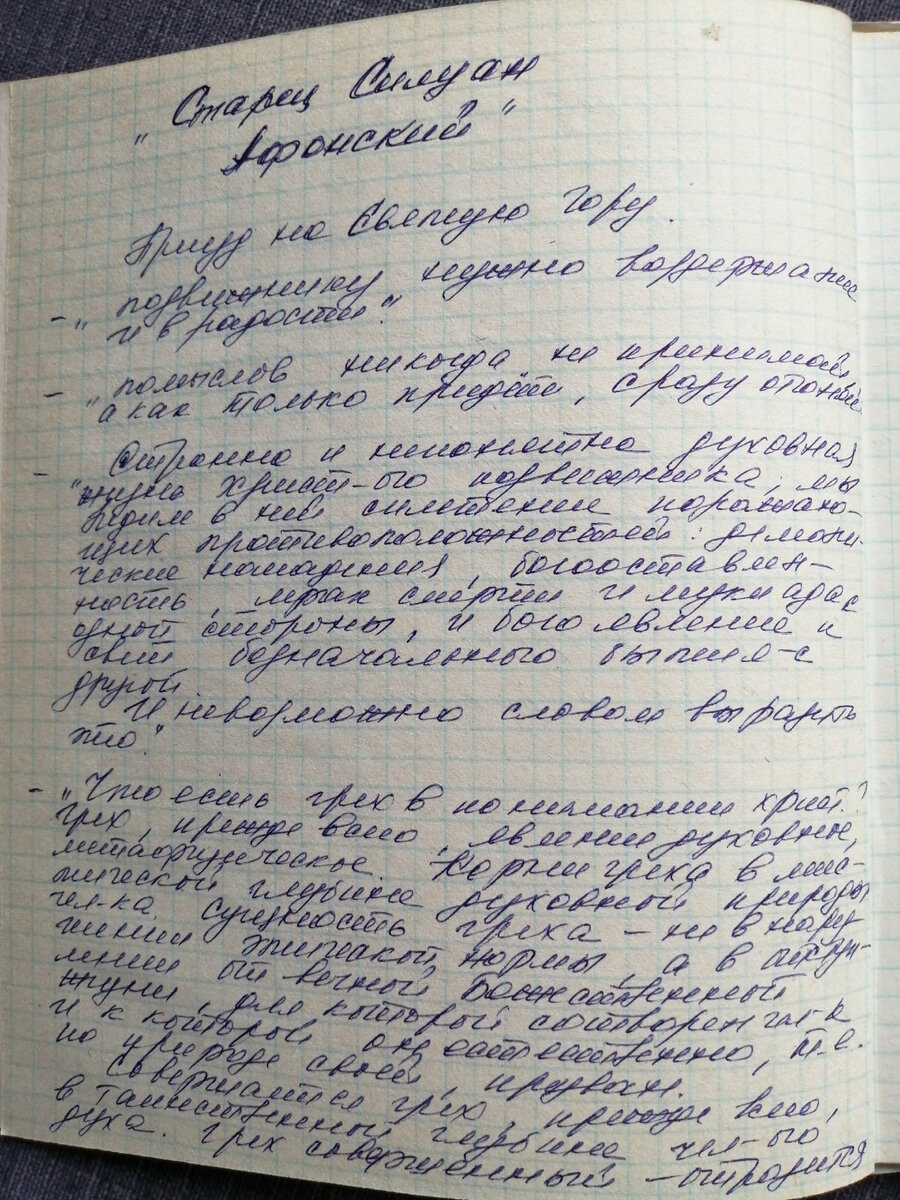 Старец Силуан
"Афонский"
Приезд на Святую Гору.
- "подвижнику нужно воздержание
и в радости."
- "помыслов никогда не принимай,
а как только придёт, сразу отгоняй
- "Странна и непонятна духовная
жизнь христ-ого подвижника, мы
видим в ней сплетение поражаю-
щих противоположностей: демони-
ческие нападения, богооставлен-
ность, мрак смерти и муки ада с
одной стороны, и богоявление и
свет безначального бытия - с
другой.
И невозможно словом выразить
это."
- "Что есть грех в понимании христ.?
Грех, прежде всего, явление духовное,
метафизическое. Корни греха в мис-
тической глубине духовной природы
чел-ка. Сущность греха - не в нару-
шении этической нормы, а в отступ-
лении от вечной Божественной
жизни, для которой сотворен чел-к
и к которой он естественно, т.е.
по природе своей, призван.
Совершается грех, прежде всего,
в таинственной глубине чел-ого
духа. Грех совершенный - отразится